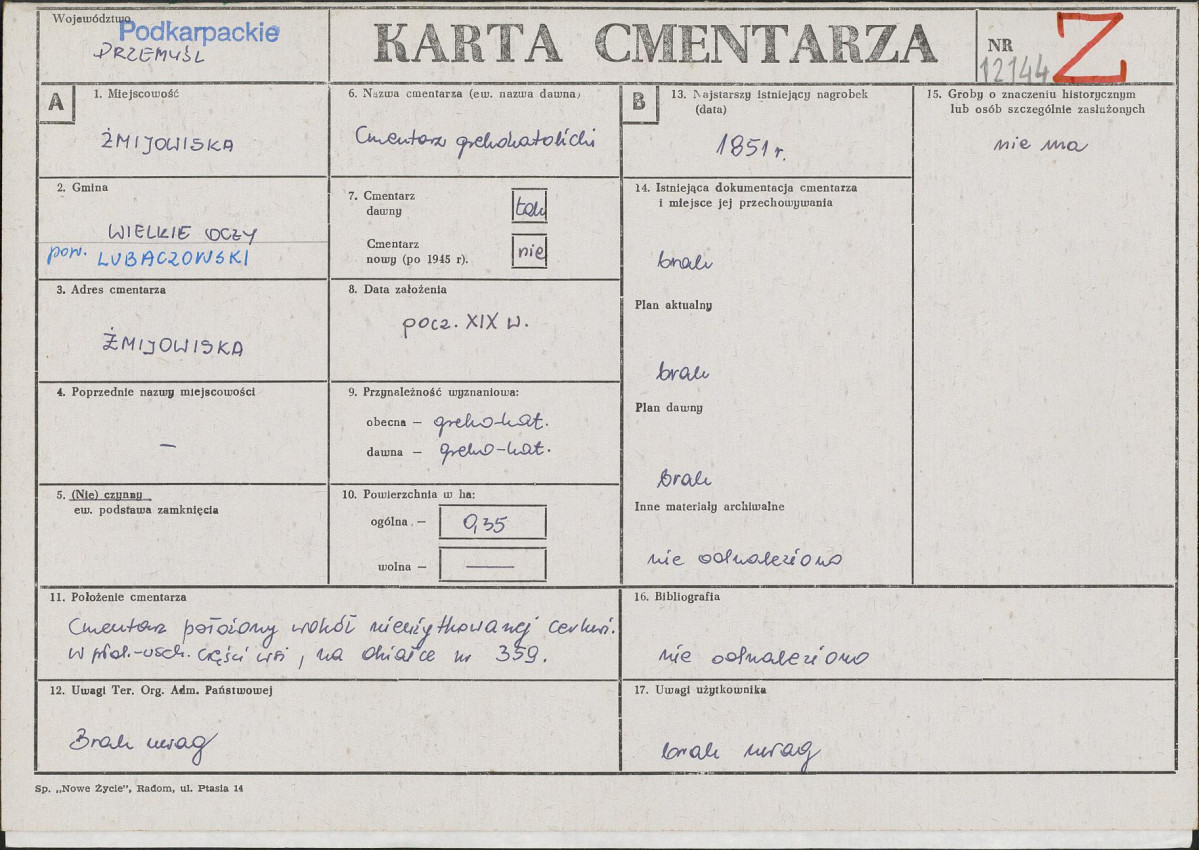 Województwo
Podkarpackie
PRZEMYŚL
KARTA CMENTARZA
NR
12144
Z
A
1. Miejscowość
ŻMIJOWISKA
2. Gmina
WIELKIE OCZY
pow. LUBACZOWSKI
3. Adres cmentarza
ŻMIJOWISKA
4. Poprzednie nazwy miejscowości
—
5. (Nie) czynny
ew. podstawa zamknięcia
6. Nazwa cmentarza (ew. nazwa dawna)
Cmentarz grekokatolicki
7. Cmentarz
dawny
tak
Cmentarz
nowy (po 1945 r).
nie
8. Data założenia
pocz. XIX w.
9. Przynależność wyznaniowa:
obecna — greko-kat.
dawna — greko-kat.
10. Powierzchnia w ha:
ogólna — 0,35
wolna — —
11. Położenie cmentarza
Cmentarz położony wokół nieużytkowanej cerkwi.
w płd.-wsch. części wsi, na działce nr 359.
12. Uwagi Ter. Org. Adm. Państwowej
Brak uwag
B
13. Najstarszy istniejący nagrobek
(data)
1851 r.
14. Istniejąca dokumentacja cmentarza
i miejsce jej przechowywania
brak
Plan aktualny
brak
Plan dawny
brak
Inne materiały archiwalne
nie odnaleziono
15. Groby o znaczeniu historycznym
lub osób szczególnie zasłużonych
nie ma
16. Bibliografia
nie odnaleziono
17. Uwagi użytkownika
brak uwag
Sp. „Nowe Życie”, Radom, ul. Ptasia 14